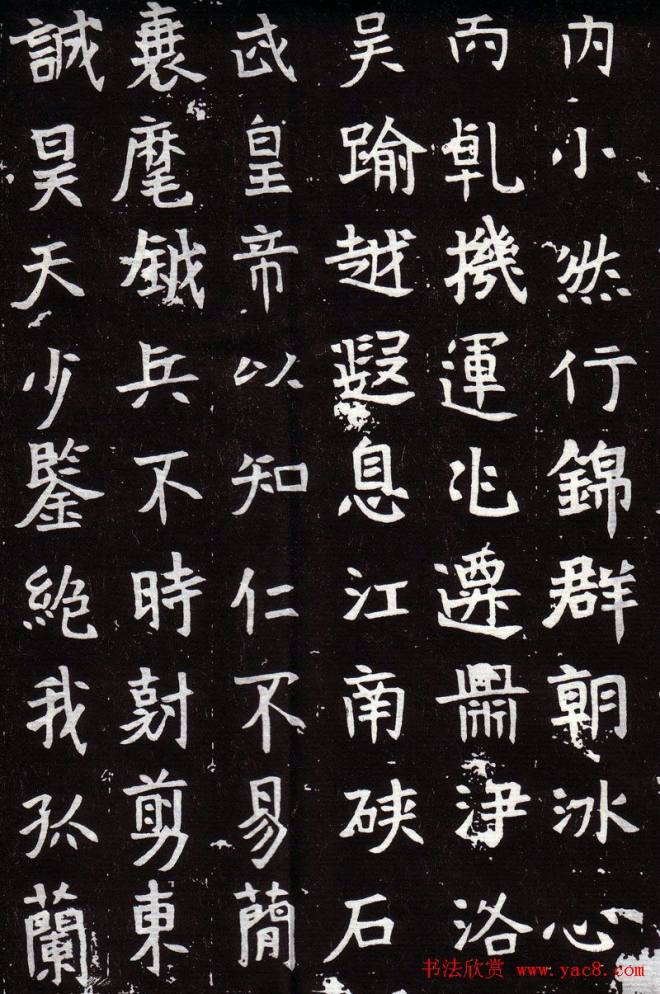 内小然行錦群朝冰心
丙乹機運兆遷鼎津洛
吴踰越遐息江南硤石
武皇帝以知仁不易蕳
襄麾鉞兵不時尅剪東
誠昊天少鑒絶我孤蘭
书法欣赏 www.yac8.com